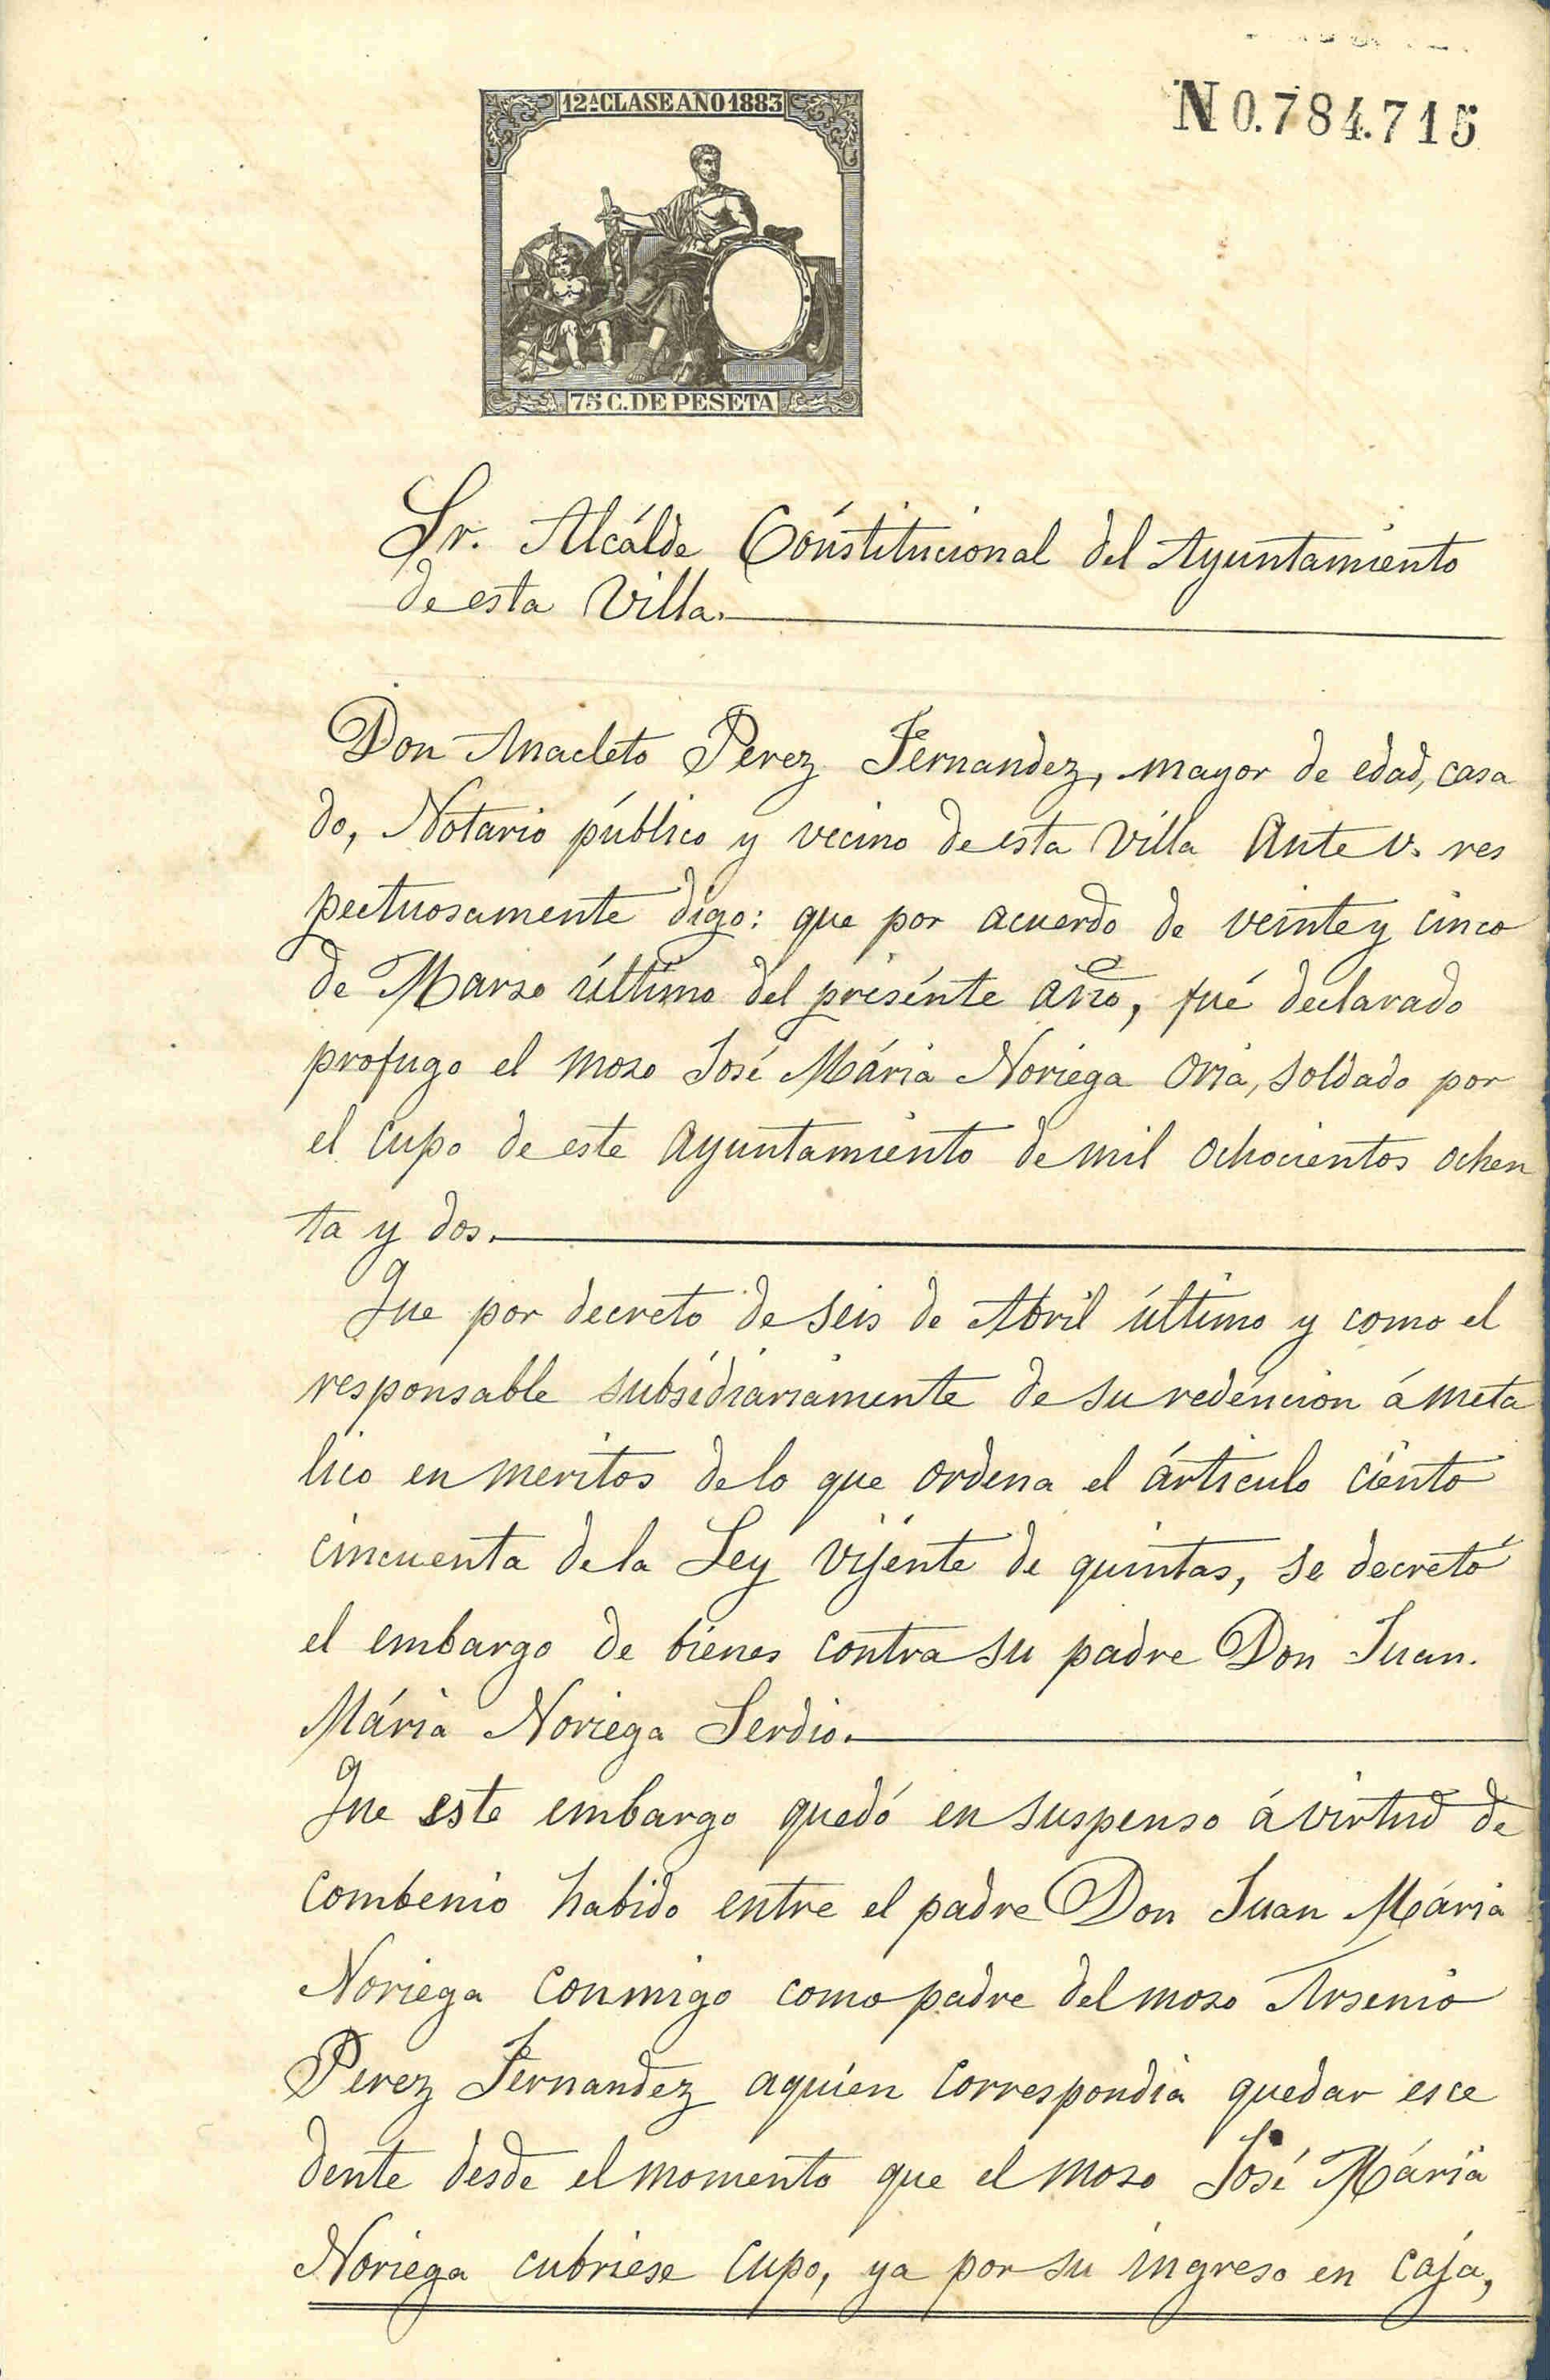 N 0.784.715
12ª CLASE AÑO 1883
75 C. DE PESETA
Sr. Alcálde Cónstitucional del Ayuntamiento
de esta Villa.
Don Anacleto Perez Fernandez, mayor de edad, casa
do, Notario público y vecino de esta Villa Ante V. res
pectuosamente digo: que por acuerdo de veinte y cinco
de Marso último del presénte año, fué declarado
profugo el moso José Mária Noriega Oria, soldado por
el cupo de este Ayuntamiento de mil ochocientos ochen
ta y dos.
Que por decreto de seis de Abril último y como el
responsable subsidiariamente de su redéncion á meta
lico en meritos de lo que ordena el árticulo ciento
cincuenta de la Ley vijente de quintas, se decretó
el embargo de bienes contra su padre Don Juan.
Mária Noriega Serdio.
Que este embargo quedó en suspenso á virtud de
combenio habido entre el padre Don Juan Mária
Noriega conmigo como padre del moso Arsenio
Perez Fernandez aquien correspondia quedar esce
dente desde el momento que el moso José Mária
Noriega cubriese cupo, ya por su ingreso en caja,